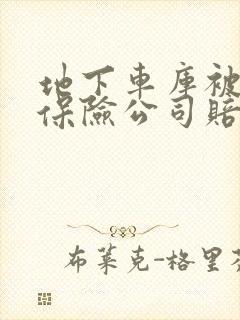 地下車庫被
保險公司賠
布萊克-格里